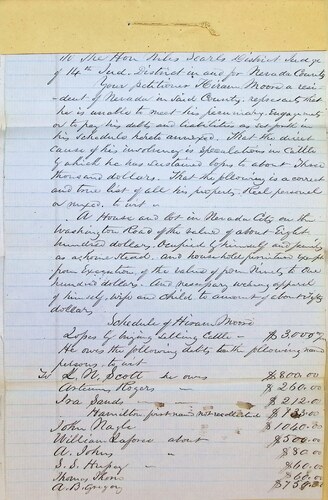 To The Hon Niles Searls District Judge
of 14th Jud. District in and for Nevada County
Your petitioner Hiram Moon a resi-
dent of Nevada in Said County, represents that
he is unable to meet his pecuniary Engagements
or to pay his debts and liabilities as set forth in
his schedule hereto annexed. That the direct
cause of his insolvency is speculations in Cattle
by which he has sustained loses to about Three
thousand dollars. That the following is a correct
and true list of all his property, Real personal
or mixed, to wit
A House and lot in Nevada City on the
Washington Road of the value of about Eight
hundred dollars, Ocupied by himself and family
as a home Stead. and household furniture exempt
from Execution, of the value of from Ninety to One
hundred dollars. And necessary wearing apparel
of himself, wife and child to amount of about eighty
dollars
Schedule of Hiram Moon
Loses by buying selling Cattle $3,000
He owes the following debts to the following named
persons to wit
To L. M. Scott he owes $800.00
Rogers $260.00
Ira Sands $212.00
Hamilton first name not recollected
John Nagle $1060.00
William about $500.00
A. Johns $80.00
S. S. $60.00
Thomas
A. B. Gregory